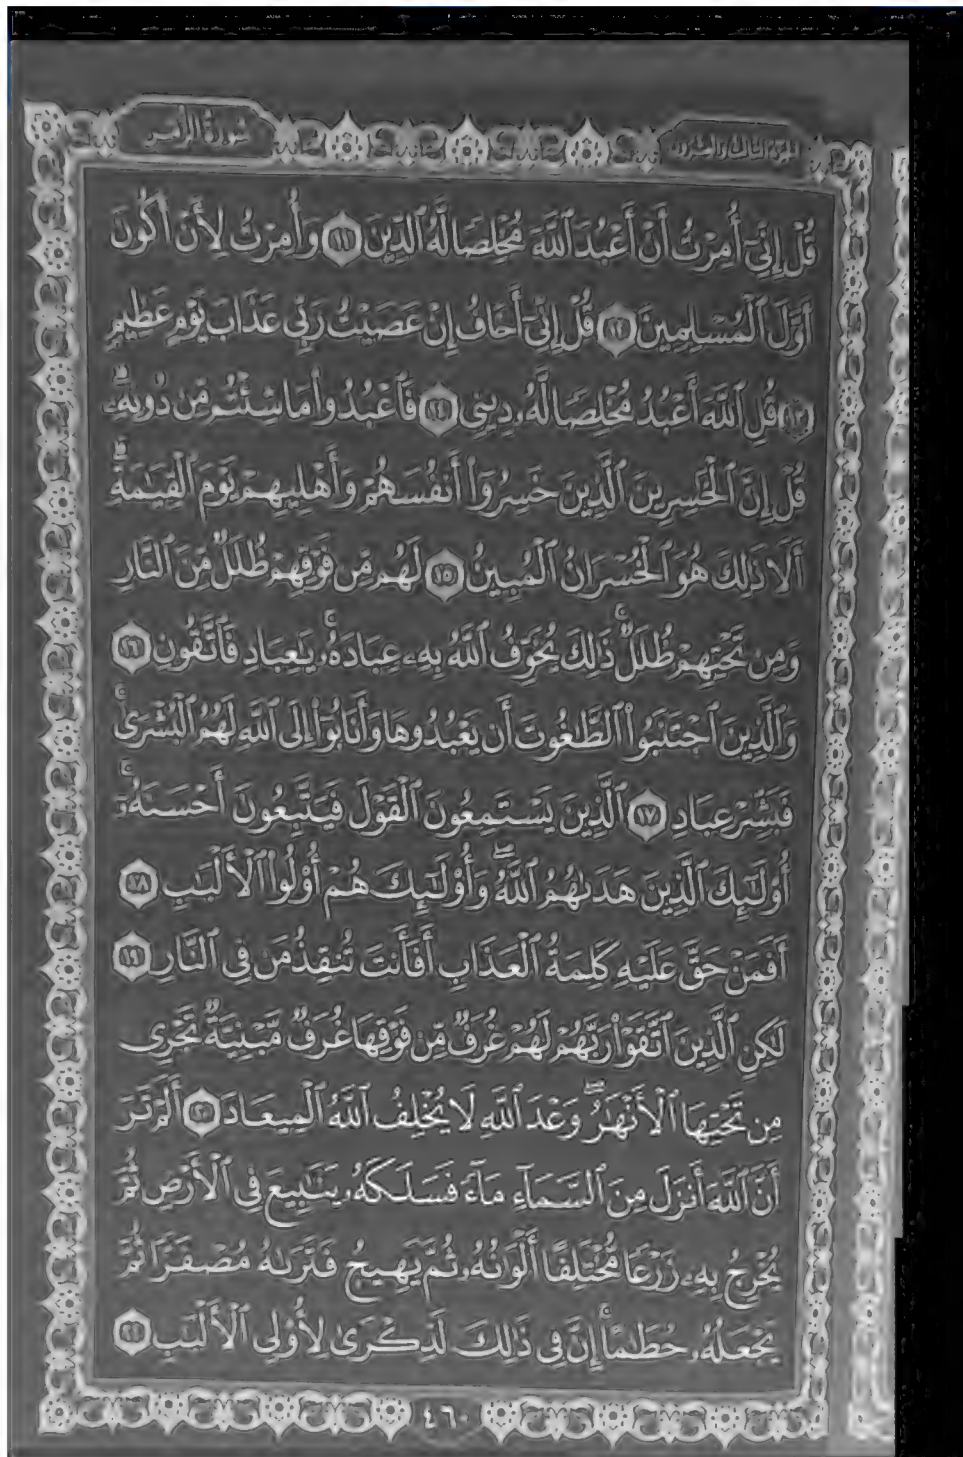 سورة الزمر
الجزء الثالث والعشرون
قُلْ إِنِّيٓ أُمِرْتُ أَنْ أَعْبُدَ ٱللَّهَ مُخْلِصًا لَّهُ ٱلدِّينَ ١١ وَأُمِرْتُ لِأَنْ أَكُونَ
أَوَّلَ ٱلْمُسْلِمِينَ ١٢ قُلْ إِنِّيٓ أَخَافُ إِنْ عَصَيْتُ رَبِّي عَذَابَ يَوْمٍ عَظِيمٍ
١٣ قُلِ ٱللَّهَ أَعْبُدُ مُخْلِصًا لَّهُۥ دِينِي ١٤ فَٱعْبُدُوا۟ مَا شِئْتُم مِّن دُونِهِۦۗ
قُلْ إِنَّ ٱلْخَٰسِرِينَ ٱلَّذِينَ خَسِرُوٓا۟ أَنفُسَهُمْ وَأَهْلِيهِمْ يَوْمَ ٱلْقِيَٰمَةِۗ
أَلَا ذَٰلِكَ هُوَ ٱلْخُسْرَانُ ٱلْمُبِينُ ١٥ لَهُم مِّن فَوْقِهِمْ ظُلَلٌ مِّنَ ٱلنَّارِ
وَمِن تَحْتِهِمْ ظُلَلٌۚ ذَٰلِكَ يُخَوِّفُ ٱللَّهُ بِهِۦ عِبَادَهُۥۚ يَٰعِبَادِ فَٱتَّقُونِ ١٦
وَٱلَّذِينَ ٱجْتَنَبُوا۟ ٱلطَّٰغُوتَ أَن يَعْبُدُوهَا وَأَنَابُوٓا۟ إِلَى ٱللَّهِ لَهُمُ ٱلْبُشْرَىٰۚ
فَبَشِّرْ عِبَادِ ١٧ ٱلَّذِينَ يَسْتَمِعُونَ ٱلْقَوْلَ فَيَتَّبِعُونَ أَحْسَنَهُۥٓۚ
أُو۟لَٰٓئِكَ ٱلَّذِينَ هَدَىٰهُمُ ٱللَّهُۖ وَأُو۟لَٰٓئِكَ هُمْ أُو۟لُوا۟ ٱلْأَلْبَٰبِ ١٨
أَفَمَنْ حَقَّ عَلَيْهِ كَلِمَةُ ٱلْعَذَابِ أَفَأَنتَ تُنقِذُ مَن فِي ٱلنَّارِ ١٩
لَٰكِنِ ٱلَّذِينَ ٱتَّقَوْا۟ رَبَّهُمْ لَهُمْ غُرَفٌ مِّن فَوْقِهَا غُرَفٌ مَّبْنِيَّةٌ تَجْرِي
مِن تَحْتِهَا ٱلْأَنْهَٰرُۖ وَعْدَ ٱللَّهِ لَا يُخْلِفُ ٱللَّهُ ٱلْمِيعَادَ ٢٠ أَلَمْ تَرَ
أَنَّ ٱللَّهَ أَنزَلَ مِنَ ٱلسَّمَآءِ مَآءً فَسَلَكَهُۥ يَنَٰبِيعَ فِي ٱلْأَرْضِ ثُمَّ
يُخْرِجُ بِهِۦ زَرْعًا مُّخْتَلِفًا أَلْوَٰنُهُۥ ثُمَّ يَهِيجُ فَتَرَىٰهُ مُصْفَرًّا ثُمَّ
يَجْعَلُهُۥ حُطَٰمًاۚ إِنَّ فِي ذَٰلِكَ لَذِكْرَىٰ لِأُو۟لِي ٱلْأَلْبَٰبِ ٢١
٤٦٠